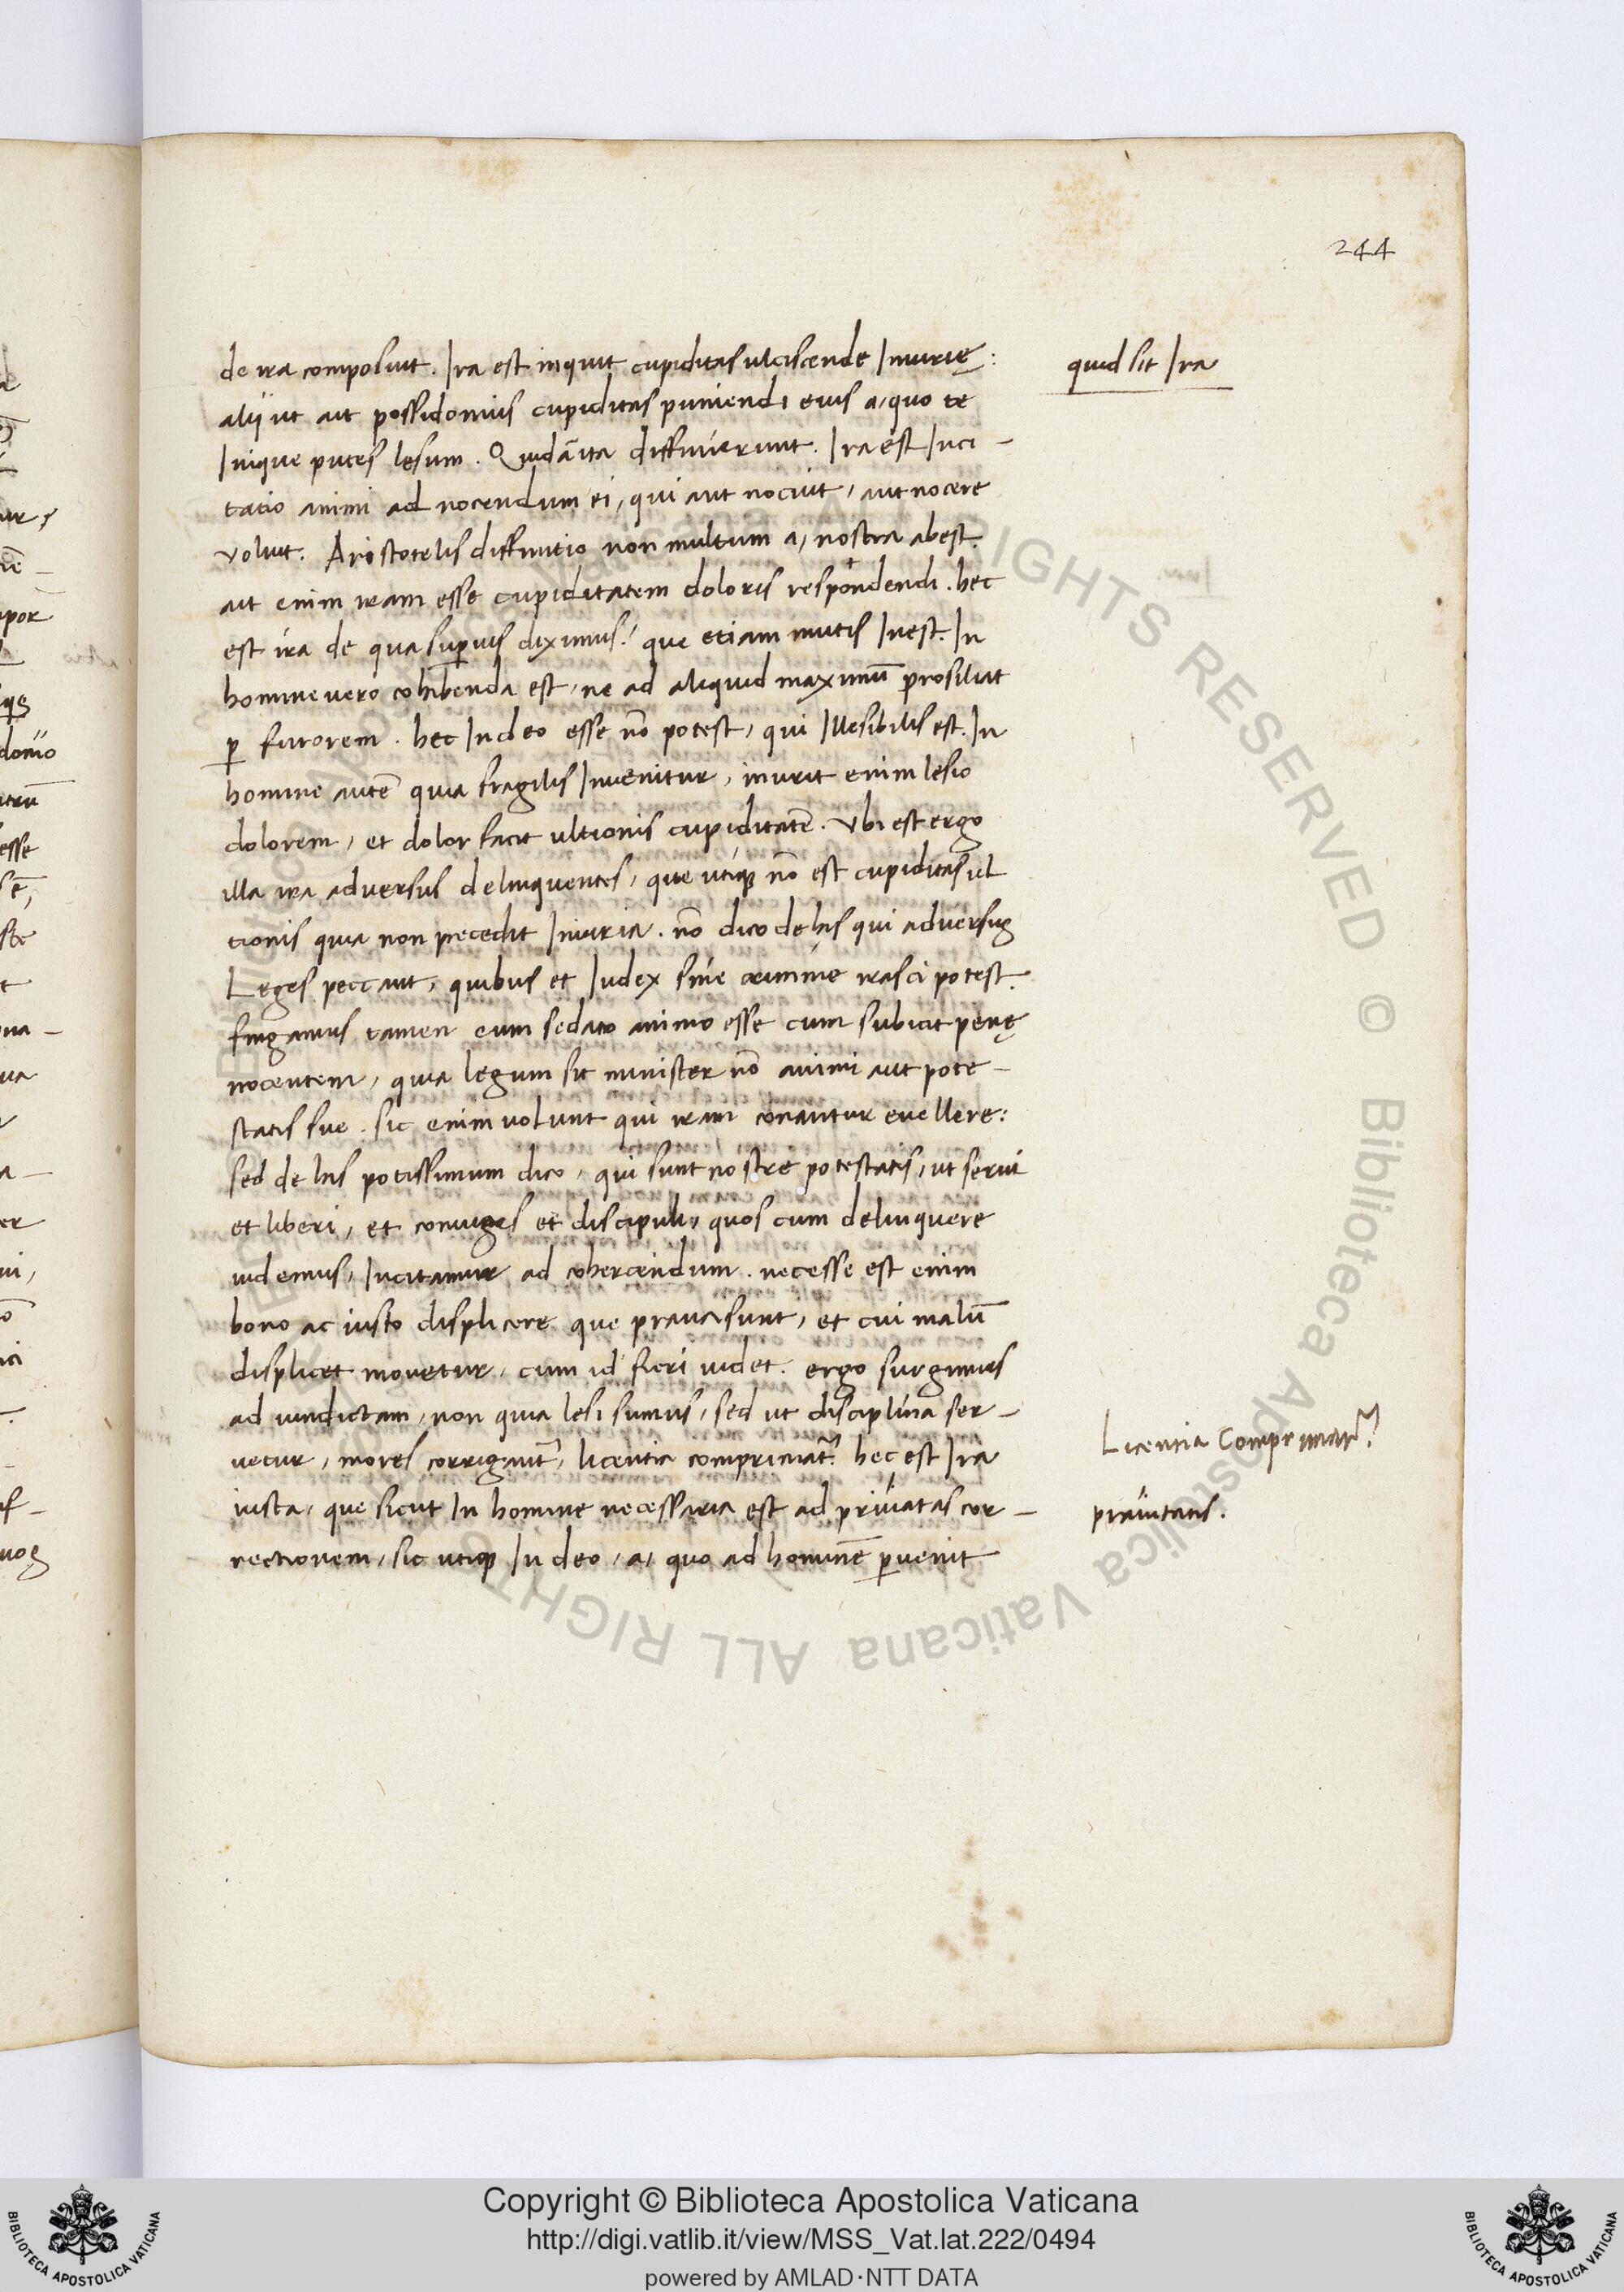 244
de ira composuit. Ira est inquit cupiditas ulciscende Iniurię:
alij ut ait possidonius cupiditas puniendi eius a, quo te
Inique putes lesum. Quidā ita diffinierunt. Ira est Inci-
tatio animi ad nocendum ei, qui aut nocuit, aut nocere
voluit: Aristotelis diffinitio non multum a, nostra abest.
ait enim iram esse cupiditatem doloris respondendi. hec
est ira de qua superius diximus: que etiam mutis Inest. In
homine vero cohibenda est, ne ad aliquid maximū prosiliat
p̱ furorem. hec In deo esse nō potest, qui Illesibilis est. In
homine autē quia fragilis Invenitur, inurit enim lesio
dolorem, et dolor facit ultionis cupiditatē. Vbi est ergo
illa ira adversus delinquentes, que utiqꝫ nō est cupiditas ul
tionis quia non precedit Iniuria. nō dico de his qui adversus
Leges peccant, quibus et Iudex sine crimine irasci potest.
fingamus tamen eum sedato animo esse cum subicit penę
nocentem, quia legum sit minister nō animi aut pote-
statis sue. sic enim volunt qui iram conantur evellere:
sed de his potissimum dico, qui sunt nostre potestatis, ut servi
et liberi, et coniuges et discipuli, quos cum delinquere
videmus, Incitamur ad cohercendum. necesse est enim
bono ac iusto displicere que prava sunt, et cui malū
displicet movetur, cum id fieri videt. ergo surgimus
ad vindictam, non quia lesi sumus, sed ut disciplina ser-
vetur, mores corrigant᷑, licentia comprimat᷑. hec est Ira
iusta, que sicut In homine necessaria est ad priviatas cor-
rectionem, sic utiqꝫ In deo, a, quo ad hominē p̱venit
quid sit Ira
Licentia Comprimat᷑.
pravitatis.
Copyright © Biblioteca Apostolica Vaticana
http://digi.vatlib.it/view/MSS_Vat.lat.222/0494
powered by AMLAD·NTT DATA
BIBLIOTECA APOSTOLICA VATICANA
BIBLIOTECA APOSTOLICA VATICANA